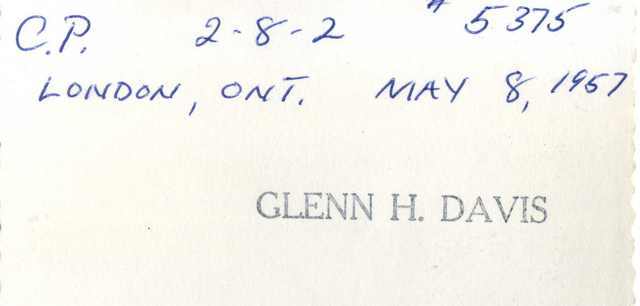 C.P. 2-8-2 # 5375
LONDON, ONT. MAY 8, 1957
GLENN H. DAVIS